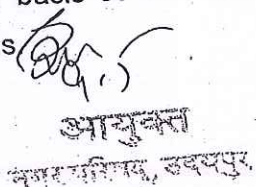 s
आयुक्त
नगर परिषद, उदयपुर